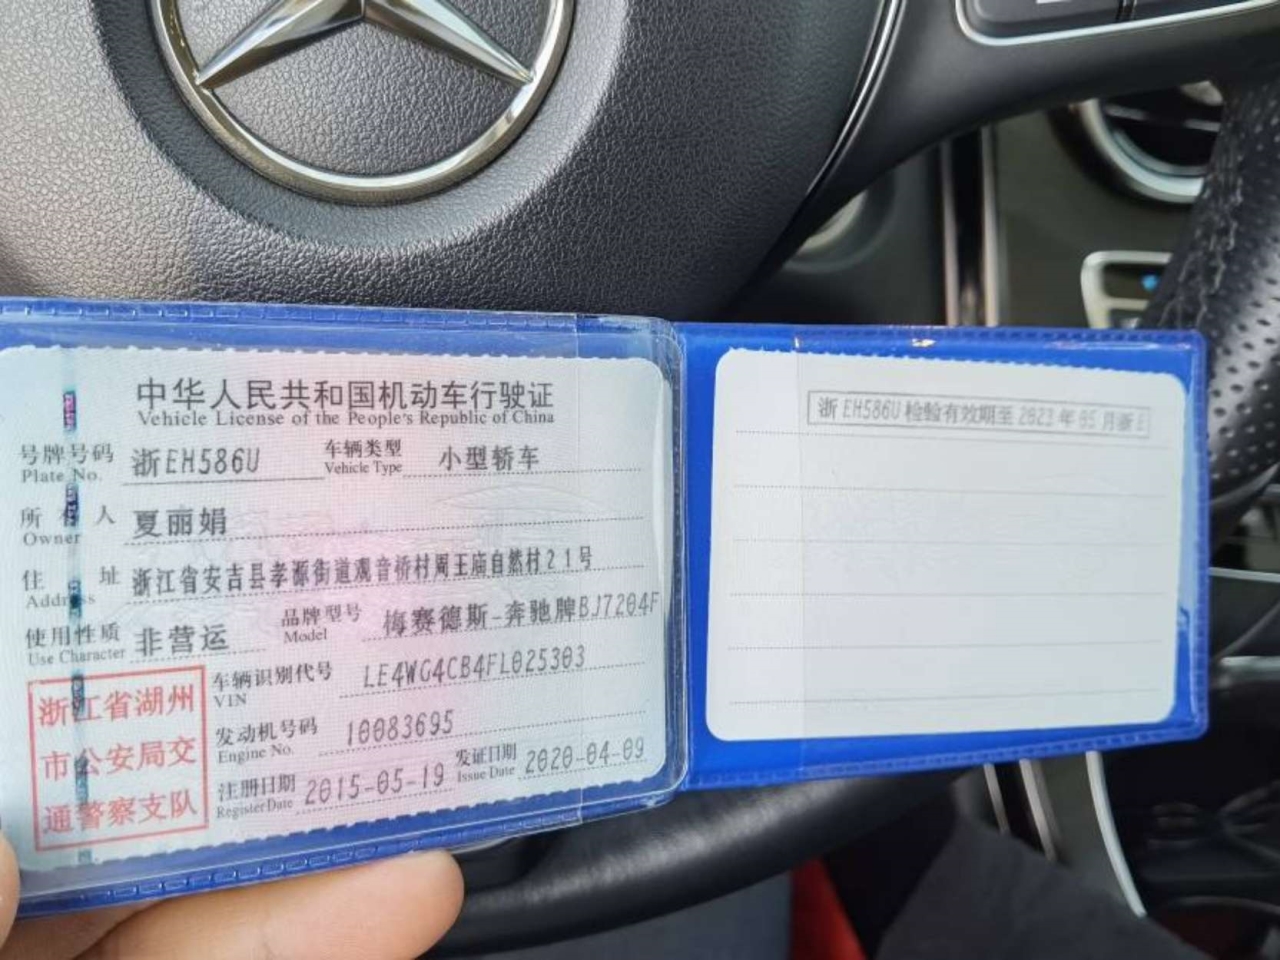 中华人民共和国机动车行驶证
Vehicle License of the People's Republic of China
号牌号码 浙EH586U 车辆类型 小型轿车
Plate No. Vehicle Type
所有人 夏丽娟
Owner
住址 浙江省安吉县孝源街道观音桥村周王庙自然村21号
Address
使用性质 非营运 品牌型号 梅赛德斯-奔驰牌BJ7204F
Use Character Model
车辆识别代号 LE4WG4CB4FL025303
VIN
发动机号码 10083695
Engine No.
注册日期 2015-05-19 发证日期 2020-04-09
Register Date Issue Date
浙江省湖州
市公安局交
通警察支队
浙EH586U检验有效期至2023年05月浙E